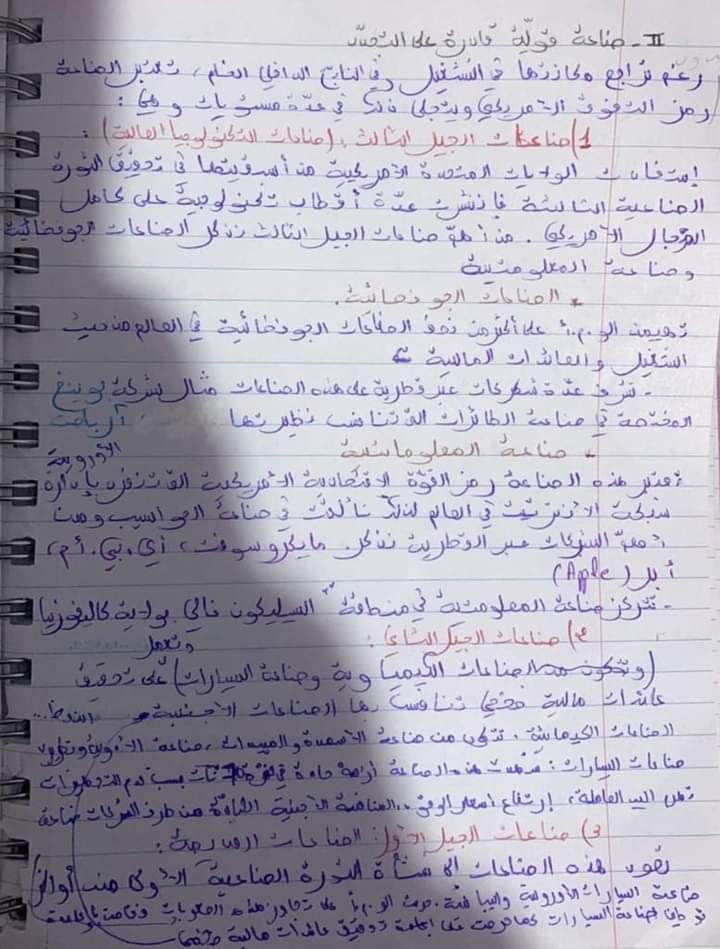 II - صناعة قويّة قادرة على التجدّد
رغم تراجع مكانتها في التشغيل وفي الناتج الداخلي الخام، تعتبر الصناعة
رمز التفوق الأمريكي ويتجلى ذلك في عدة مستويات وهي :
1) صناعات الجيل الثالث : (صناعات التكنولوجيا العالية) :
إستفادت الولايات المتحدة الأمريكية من أسبقيتها في تحقيق الثورة
الصناعية الثالثة فانتشرت عدّة أقطاب تكنولوجية على كامل
المجال الأمريكي . من أهمّ صناعات الجيل الثالث نذكر الصناعات الجوفضائية
وصناعة المعلومتية
* الصناعات الجوفضائية.
تهيمن الو.م.أ على أكثر من نصف الصناعات الجوفضائية في العالم من حيث
التشغيل والعائدات المالية
- تشرف عدة شركات عبر قطرية على هذه الصناعات مثال شركة بوينغ
المختصة في صناعة الطائرات التي تنافس نظيرتها آرباص
الأوروبية
* صناعة المعلوماتية
تعتبر هذه الصناعة رمز القوّة الاقتصادية الأمريكية التي تنفرد بإدارة
شبكة الأنترنت في العالم لذلك تألقت في صناعة الحواسيب ومن
أهمّ الشركات عبر القطرية نذكر مايكروسوفت، أي.بي.أم،
أبل (Apple)
- تتركز صناعة المعلومتية في منطقة السيليكون فالي بولاية كاليفورنيا
2) صناعات الجيل الثاني : وتعمل
(وتتكون من الصناعات الكيمياوية وصناعة السيارات) على تحقيق
عائدات مالية تنافست بها الصناعات الأجنبية
الصناعات الكيميائية. تتكون من صناعة الأسمدة والمبيدات، صناعة الأدوية
صناعات السيارات : شهدت هذه الصناعة أزمة حادة في فترة بسبب تقدم التجهيزات
ثمن اليد العاملة، إرتفاع أسعار الوقود، المنافسة الأجنبية من طرف الشركات
3) صناعات الجيل الأول : الصناعات القديمة :
تعود هذه الصناعات إلى نشأة الثورة الصناعية الأولى منذ أواخر
صناعة السيارات الأوروبية واليابانية. الو.م.أ على تجاوز هذه الصعوبات
صناعة السيارات كما حرصت على إعادة تحقيق عائدات مالية